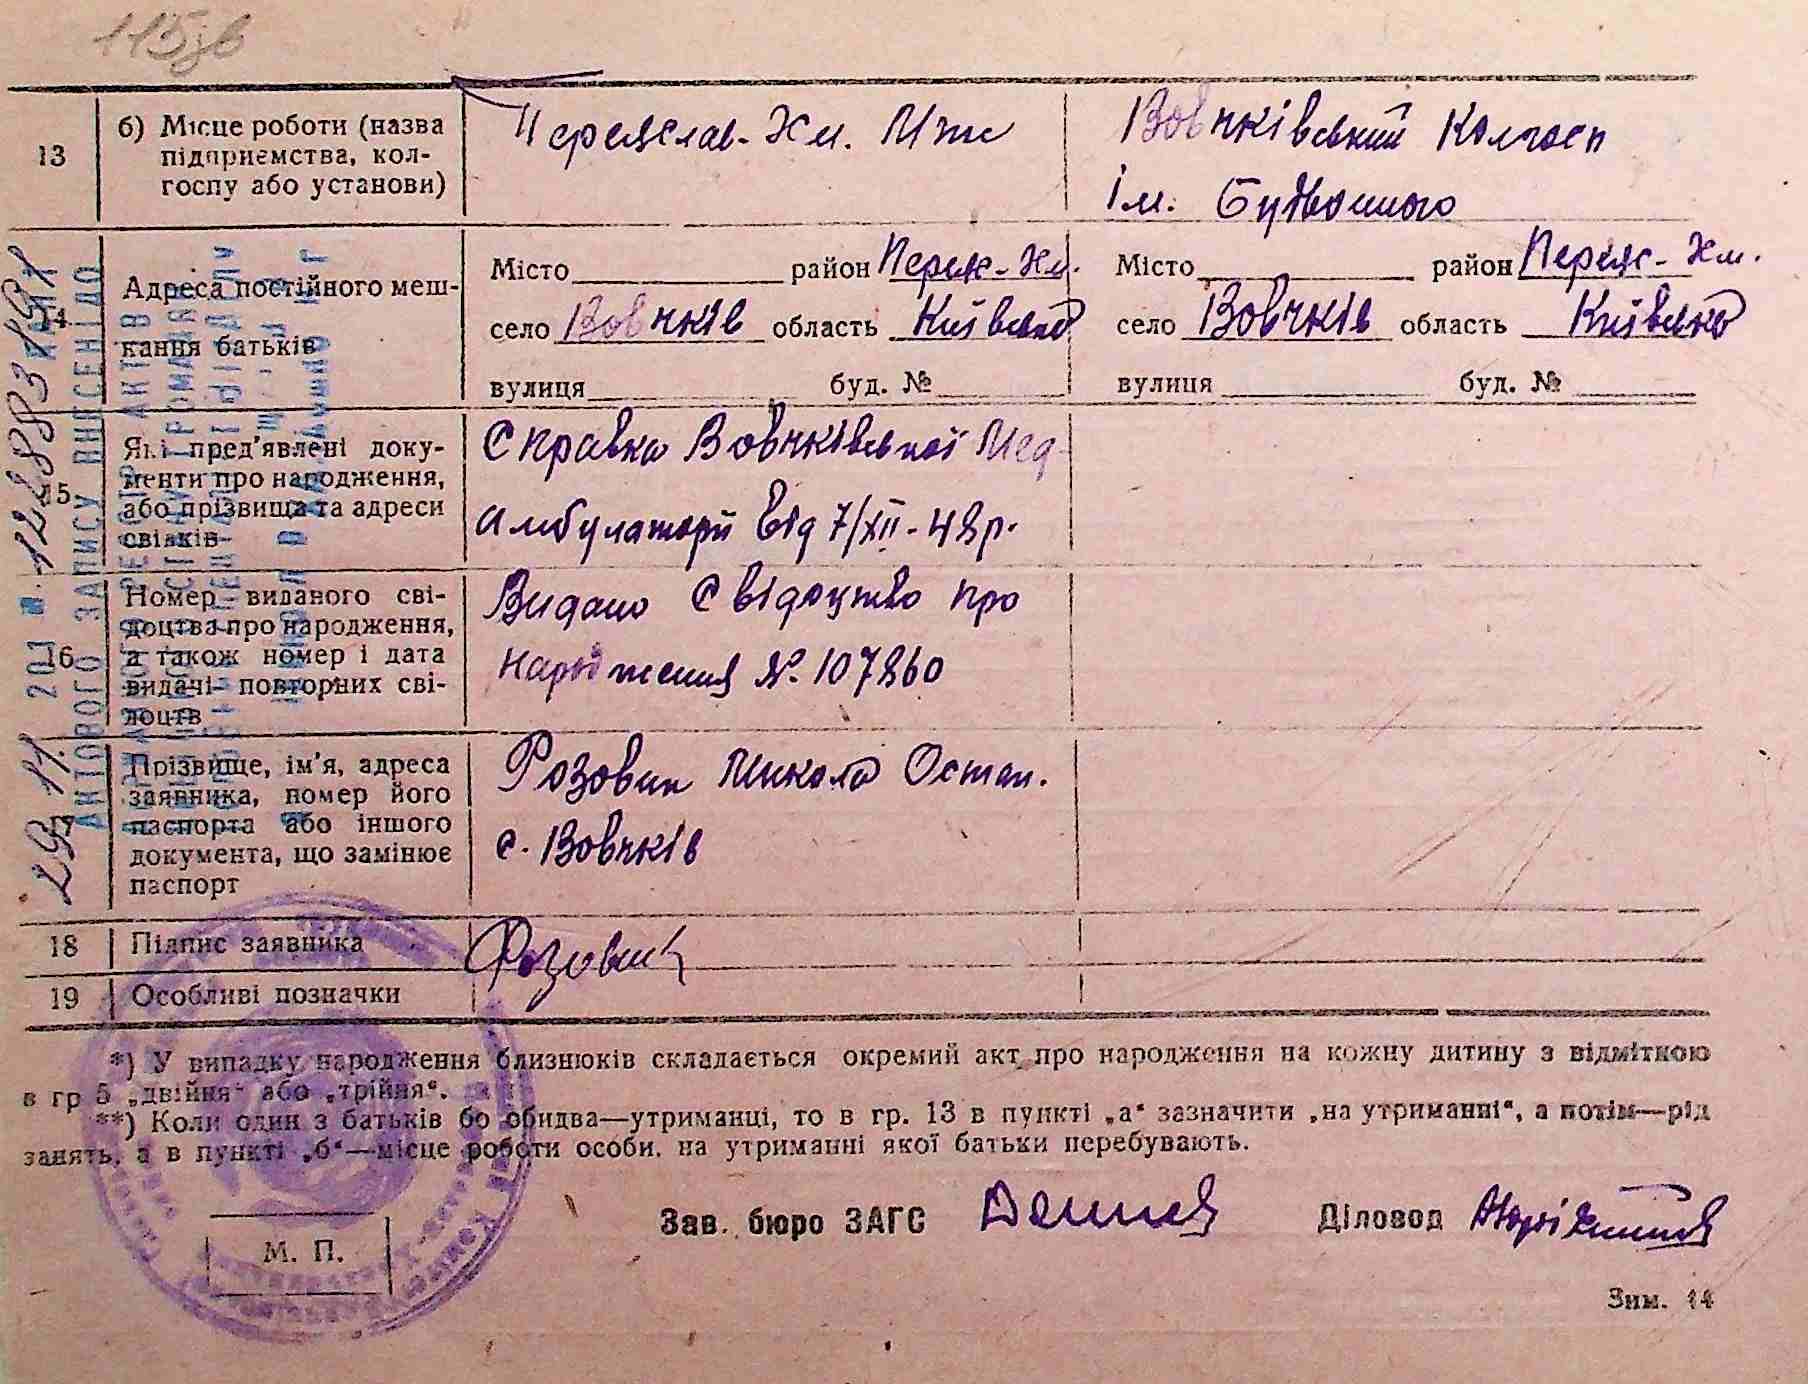 115зв
13
б) Місце роботи (назва
підприємства, кол-
госпу або установи)
Переяслав-Хм. Мтс
Вовчківський Колгосп
ім. Будьонного
14
Адреса постійного меш-
кання батьків
Місто район Переяс-Хм.
село Вовчків область Київська
вулиця буд. №
Місто район Переяс-Хм.
село Вовчків область Київська
вулиця буд. №
15
Які пред'явлені доку-
менти про народження,
або прізвища та адреси
свідків
Справка Вовчківської Мед-
Амбулаторії від 7/XII-48р.
16
Номер виданого сві-
доцтва про народження,
а також номер і дата
видачі повторних сві-
доцтв
Видано Свідоцтво про
Народження №. 107860
17
Прізвище, ім'я, адреса
заявника, номер його
паспорта або іншого
документа, що замінює
паспорт
Розовик Микола Остап.
с. Вовчків
18
Підпис заявника
Розовик
19
Особливі позначки
*) У випадку народження близнюків складається окремий акт про народження на кожну дитину з відміткою
в гр 5 „двійня" або „трійня".
**) Коли один з батьків бо обидва—утриманці, то в гр. 13 в пункті „а" зазначити „на утриманні", а потім—рід
занять, а в пункті „б"—місце роботи особи, на утриманні якої батьки перебувають.
М. П.
Зав. бюро ЗАГС
Діловод
Зим. 14
АКТОВОГО ЗАПИСУ ВНЕСЕНІ ДО